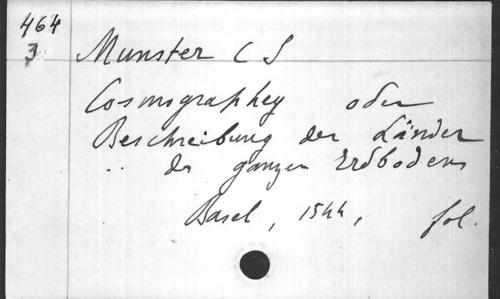 464
3
Munster C S
Cosmographey oder
Beschreibung der Länder
.. der ganzen Erdbodens
Basel, 1544, fol.